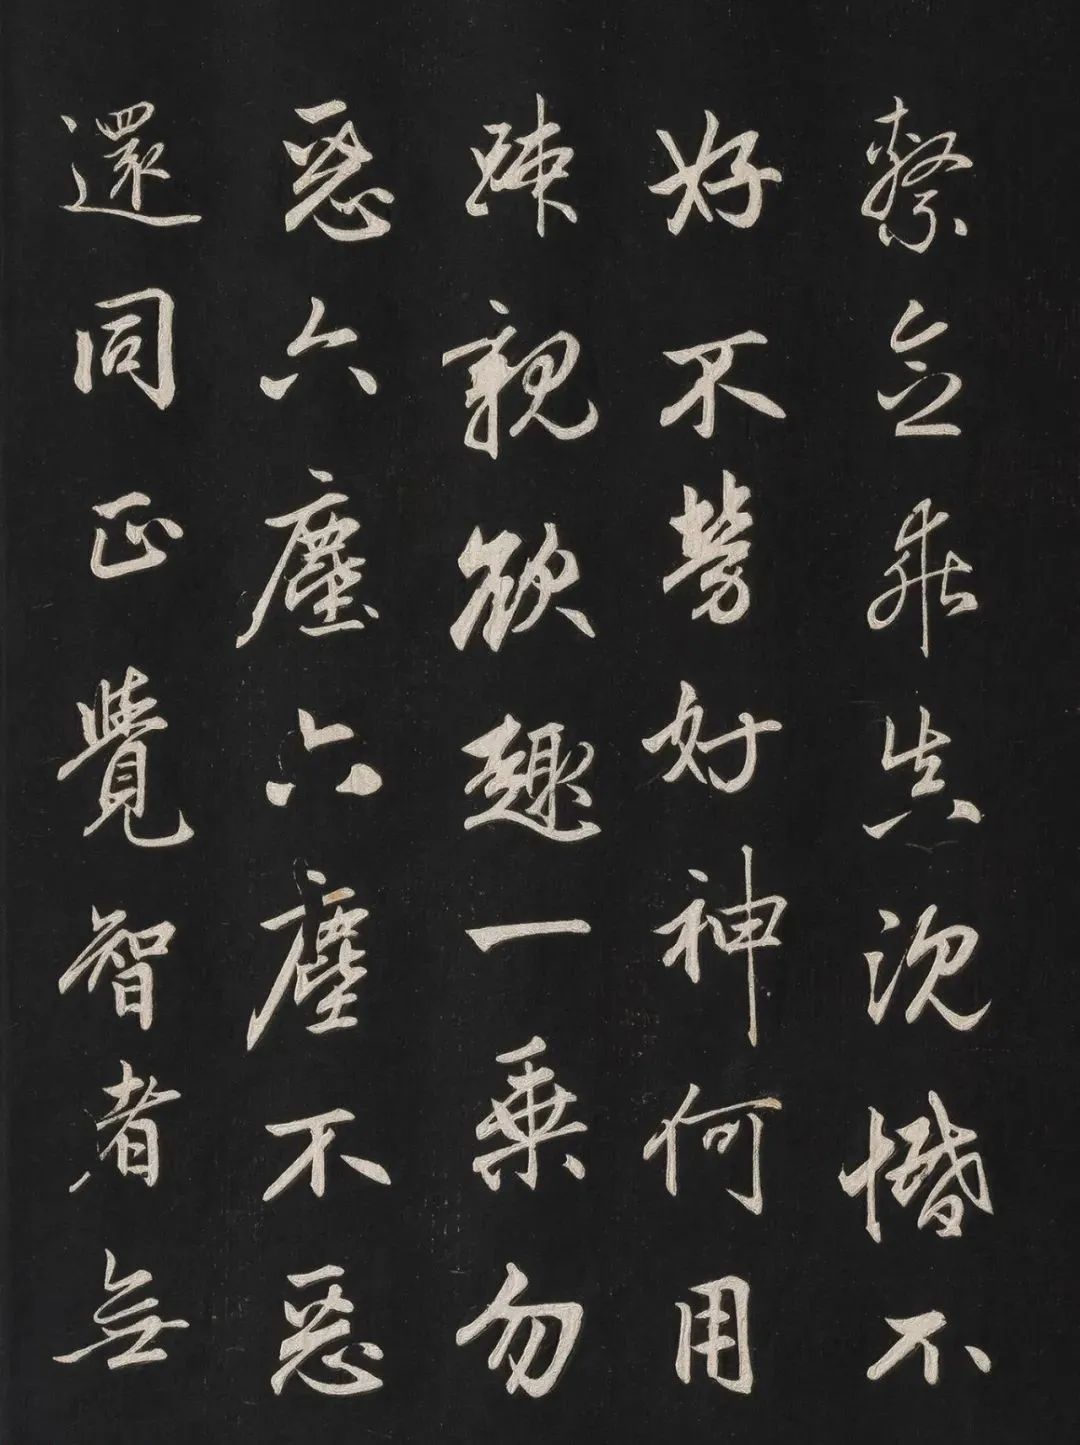 繫念乖真沉惽不
好不勞好神何用
疎親欲趣一乘勿
惡六塵六塵不惡
還同正覺智者無